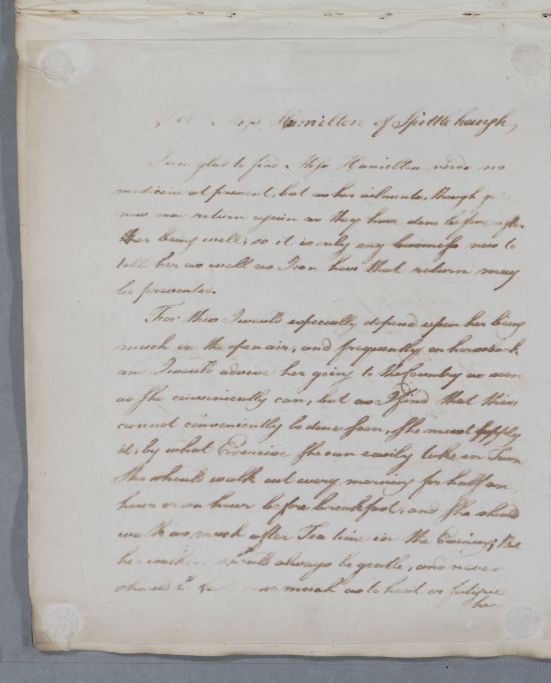 For Miss Hamilton of Spittlehaugh,
I am glad to find Miss Hamilton needs no
medicine at present, but as her ailments, though
now may return again as they have done before after
her being well; so it is only my business now to
tell her as well as I can how that return may
be prevented.
For this I would especially depend upon her being
much in the open air, and frequently on horseback
and I would advise her going to the Country as soon
as She conveniently can, but as I find that this
cannot conveniently be done soon, She must supply
it, by what Exercise She can easily take in Town
She should walk out every morning for half an
hour or an hour before breakfast, and She should
walk as much after Tea time in the Evening; But
her walking should always be gentle, and never
should be so much as to heat or fatigue
her